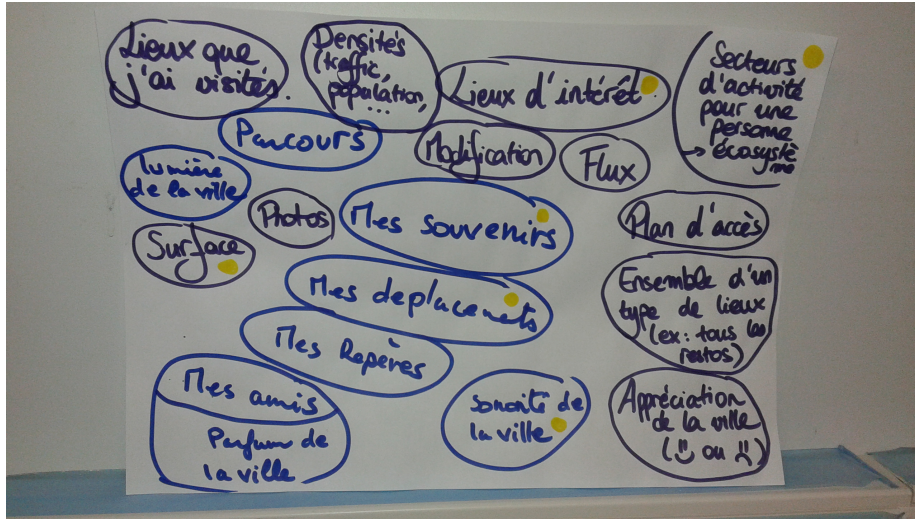 Lieux que
j'ai visités.
Densités
(traffic,
population,
...
Lieux d'intérêt
Secteurs
d'activité
pour une
personne
→ écosystè
me
Parcours
Modification
Flux
lumière
de la ville
Photos
Mes souvenirs
Plan d'accès
Surface
Mes deplacements
Ensemble d'un
type de lieux
(ex: tous les
restos)
Mes Repères
Mes amis
Parfum de
la ville
sonorité de
la ville
Appréciation
de la ville
(☺ ou ☹)